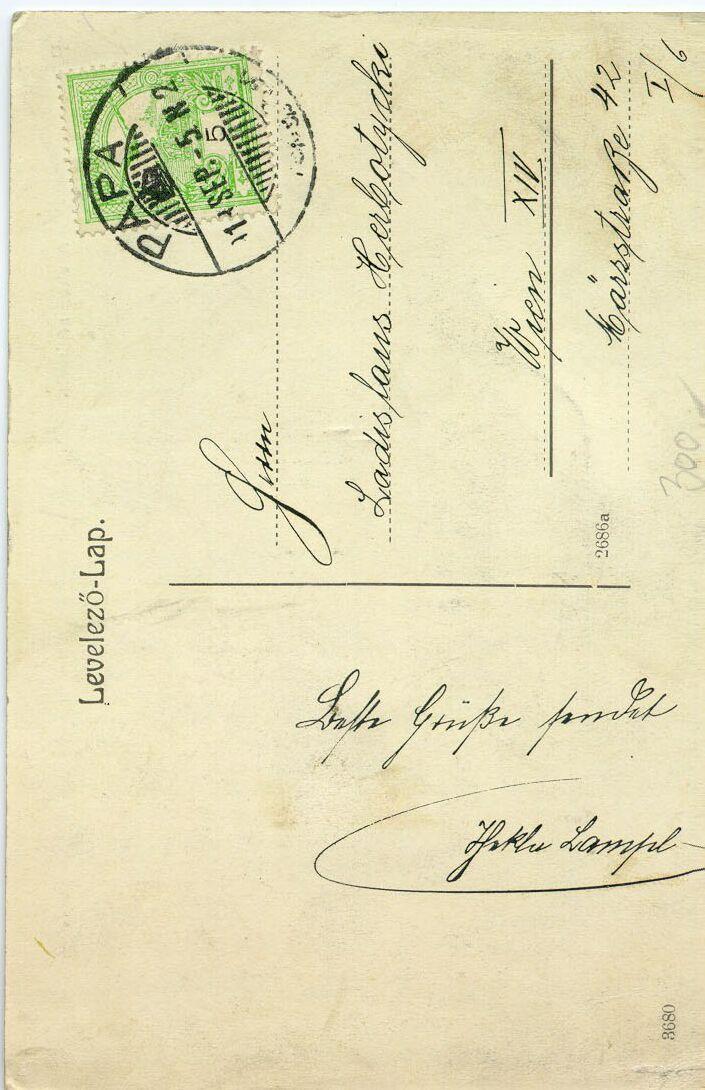 Levelező-Lap.
PÁPA
11 SEP. 5. N 2
5
Herrn
Ladislaus Herbotycki
Wien XIV
Märzstraße 42
I/6
2686a
300.-
Beste Grüße sendet
Thekla Lampl
3680